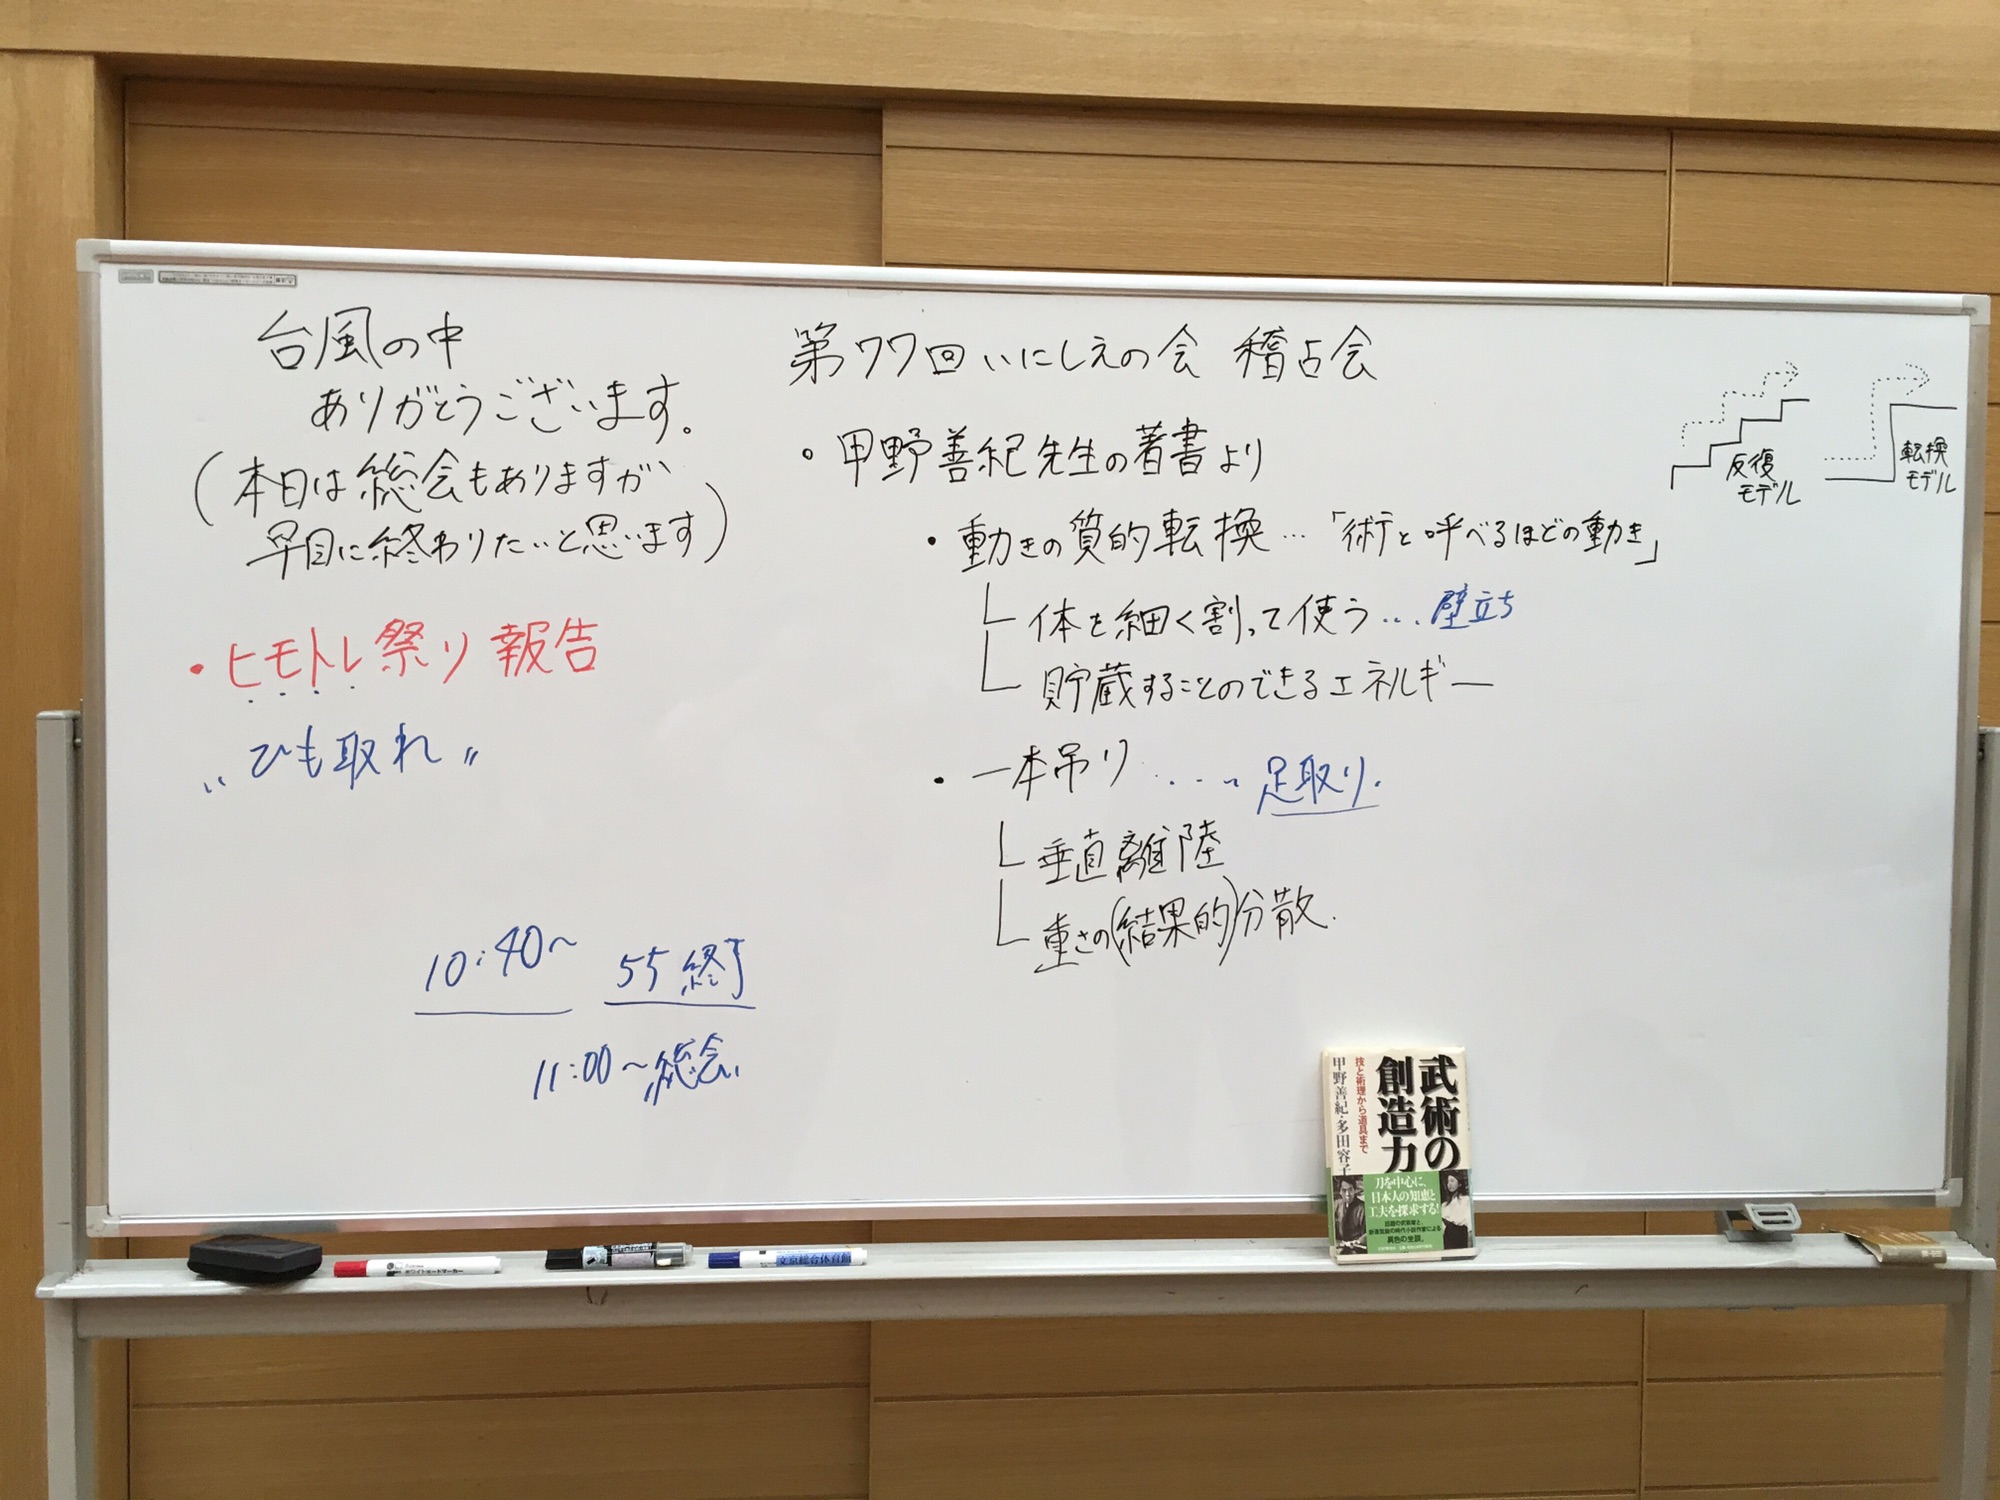 台風の中
ありがとうございます。
(本日は総会もありますが
早目に終わりたいと思います)
・ヒモトレ祭り 報告
〝ひも取れ〟
10:40〜 55終了
11:00〜総会
第77回いにしえの会 稽古会
。甲野善紀先生の著書より
・動きの質的転換…「術と呼べるほどの動き」
体を細く割って使う…壁立ち
貯蔵することのできるエネルギー
・一本吊り ・・・・ 足取り.
垂直離陸
重さの(結果的)分散.
反復
モデル
転換
モデル
武術の
創造力
技と術理から道具まで
甲野善紀・多田容子
刀を中心に、
日本人の知恵と
工夫を探求する!
話題の武術家と、
新進気鋭の時代小説作家による
異色の対談。
ホワイトボードマーカー
文京総合体育館